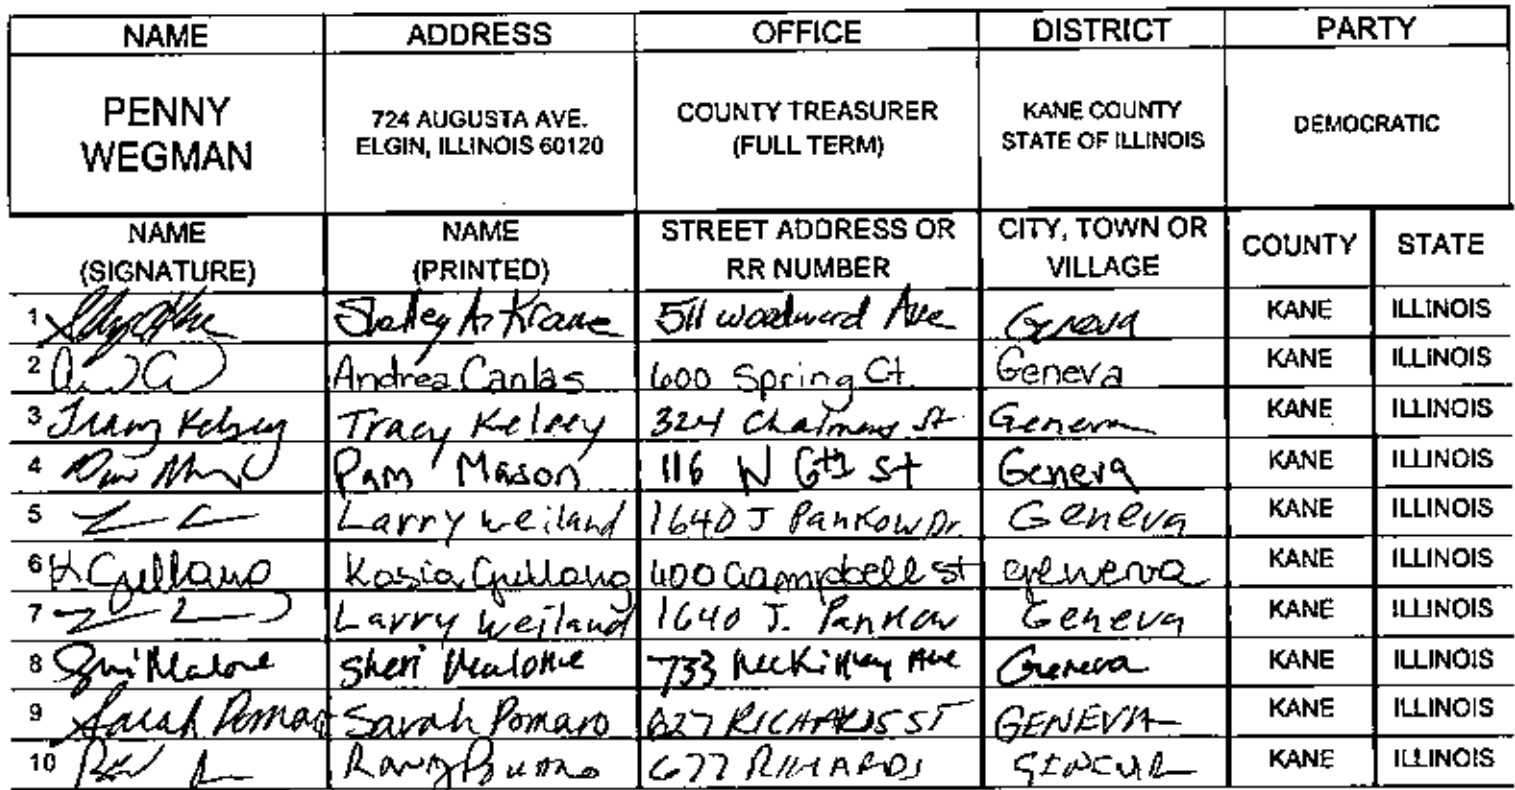 NAME ADDRESS OFFICE DISTRICT PARTY
PENNY WEGMAN 724 AUGUSTA AVE. ELGIN, ILLINOIS 60120 COUNTY TREASURER (FULL TERM) KANE COUNTY STATE OF ILLINOIS DEMOCRATIC
NAME (SIGNATURE) NAME (PRINTED) STREET ADDRESS OR RR NUMBER CITY, TOWN OR VILLAGE COUNTY STATE
1 Shelley A. Krane 511 Woodward Ave Geneva KANE ILLINOIS
2 Andrea Canlas 600 Spring Ct. Geneva KANE ILLINOIS
3 Tracy Kelsey Tracy Kelsey 324 St Geneva KANE ILLINOIS
4 Pam Mason 116 N 6th St Geneva KANE ILLINOIS
5 Larry Weiland 1640 J Pankow Dr. Geneva KANE ILLINOIS
6 K Kasia 400 Campbell st geneva KANE ILLINOIS
7 Larry Weiland 1640 J. Pankow Geneva KANE ILLINOIS
8 Sheri Malone Sheri Malone 733 McKinley Ave Geneva KANE ILLINOIS
9 Sarah Pomaro Sarah Pomaro 627 RICHARDS ST GENEVA KANE ILLINOIS
10 677 RICHARDS KANE ILLINOIS